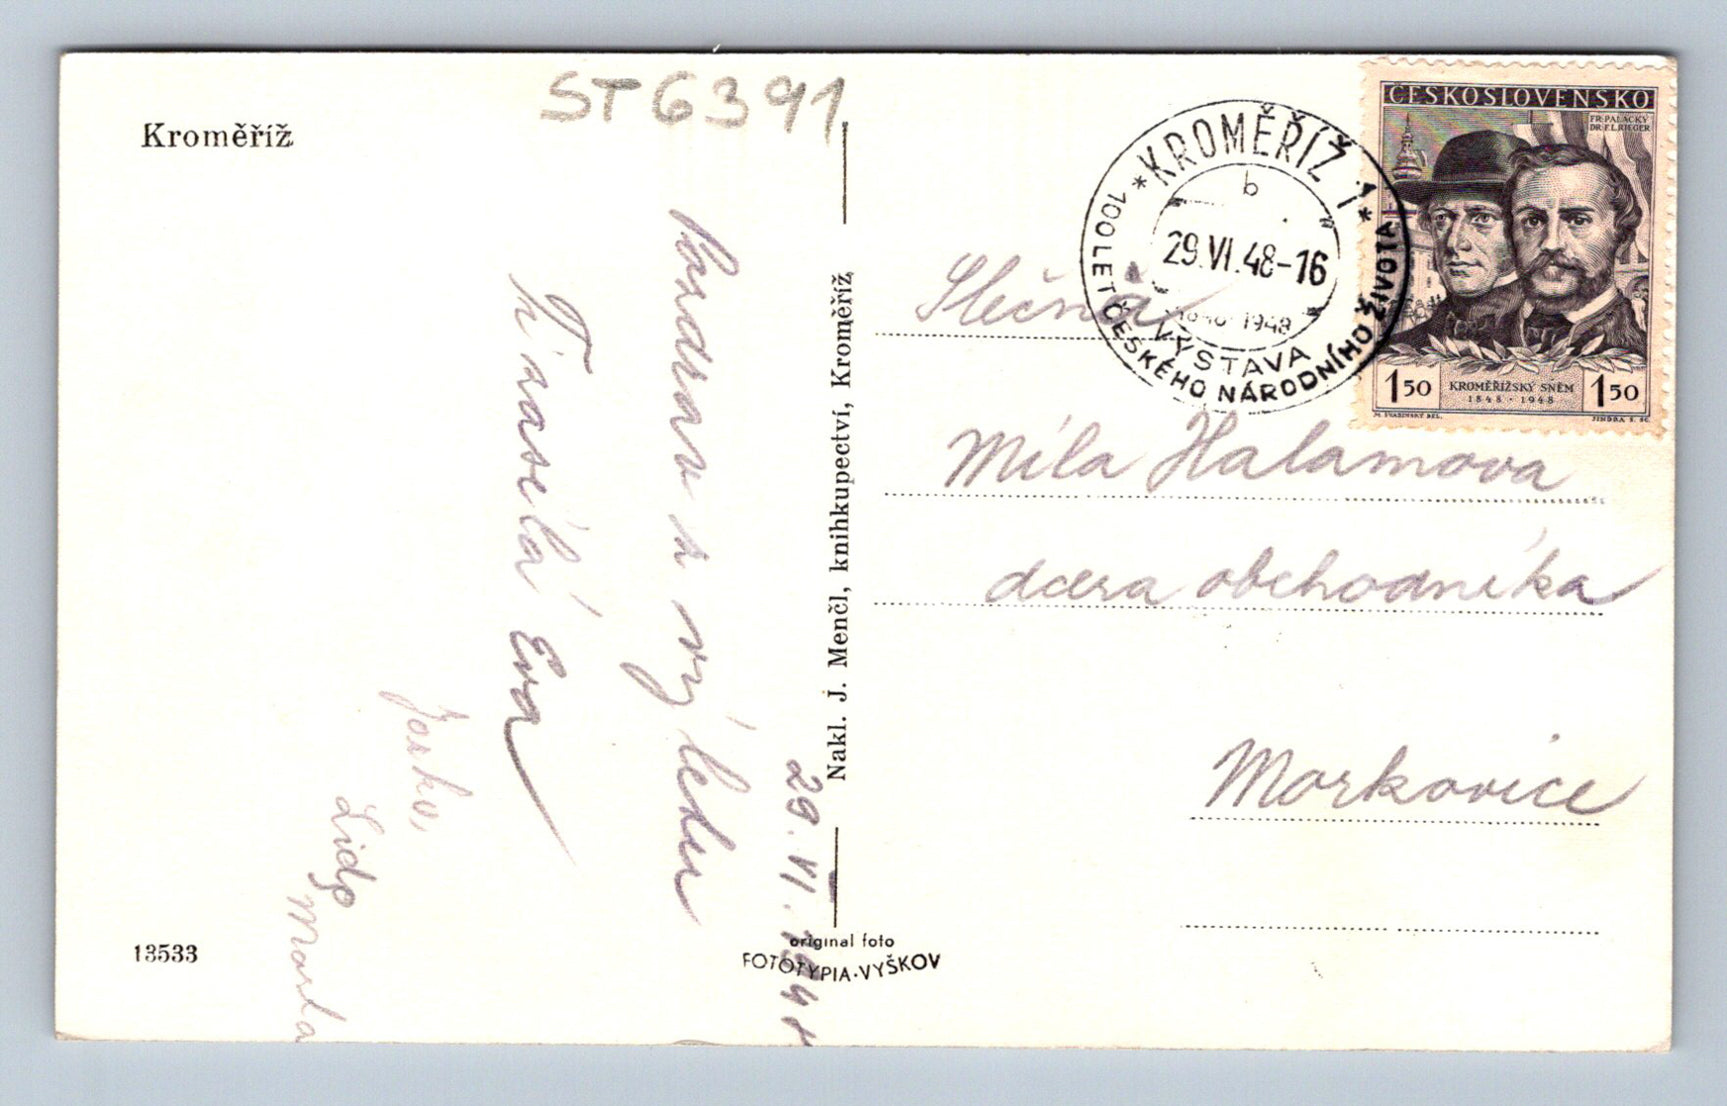 ST 6391
Kroměříž
Pozdrav z výletu
Ti zasílá Eva
Lida
29.VI.1948
13533
Nakl. J. Menčl, knihkupectví, Kroměříž
original foto
FOTOTYPIA-VYŠKOV
* KROMĚŘÍŽ 1 *
b
29.VI.48-16
1848 1948
VÝSTAVA
100 LET ČESKÉHO NÁRODNÍHO ŽIVOTA
ČESKOSLOVENSKO
FR. PALACKÝ
DR. F. L. RIEGER
1 50 KROMĚŘÍŽSKÝ SNĚM 1 50
1848 · 1948
M. ŠVABINSKÝ DEL. JINDRA S. SC.
Slečna
Míla Halamova
dcera obchodníka
Morkovice